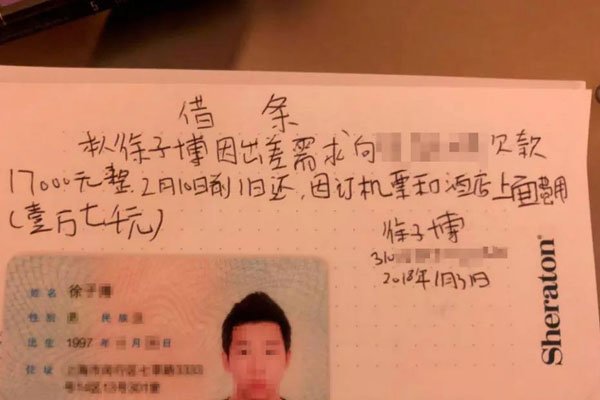 借 条
本人徐子博因出差需求向 欠款
17000元整.2月10日前归还,因订机票和酒店上面费用
(壹万七千元)
徐子博
310
2018年1月31日
Sheraton
姓 名 徐子博
性 别 男 民 族
出 生 1997 年 月 日
住 址 上海市闵行区七莘路3333
号14区13号301室